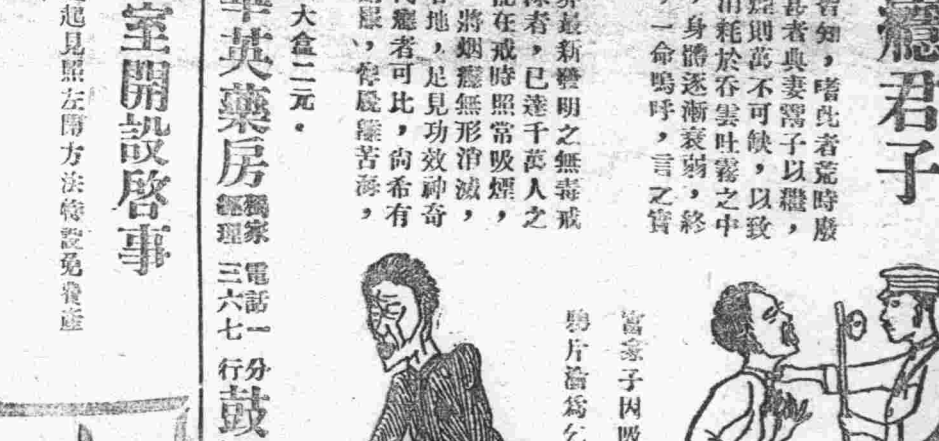 癮君子
皆知，嗜此者荒時廢
甚者典妻鬻子以繼，
煙則萬不可缺，以致
消耗於吞雲吐霧之中
，身體逐漸衰弱，終
，一命嗚呼，言之實
界最新發明之無毒戒
除者，已達千萬人之
在戒時照常吸煙，
將烟癮無形消滅，
地，足見功效神奇
代癮者可比，尙希有
離苦海，
大盒二元。
富家子因吸
鴉片淪爲乞
華英藥房
獨家經理
電話一三六七
分行
鼓
室開設啓事
起見照左開方法特設免費產